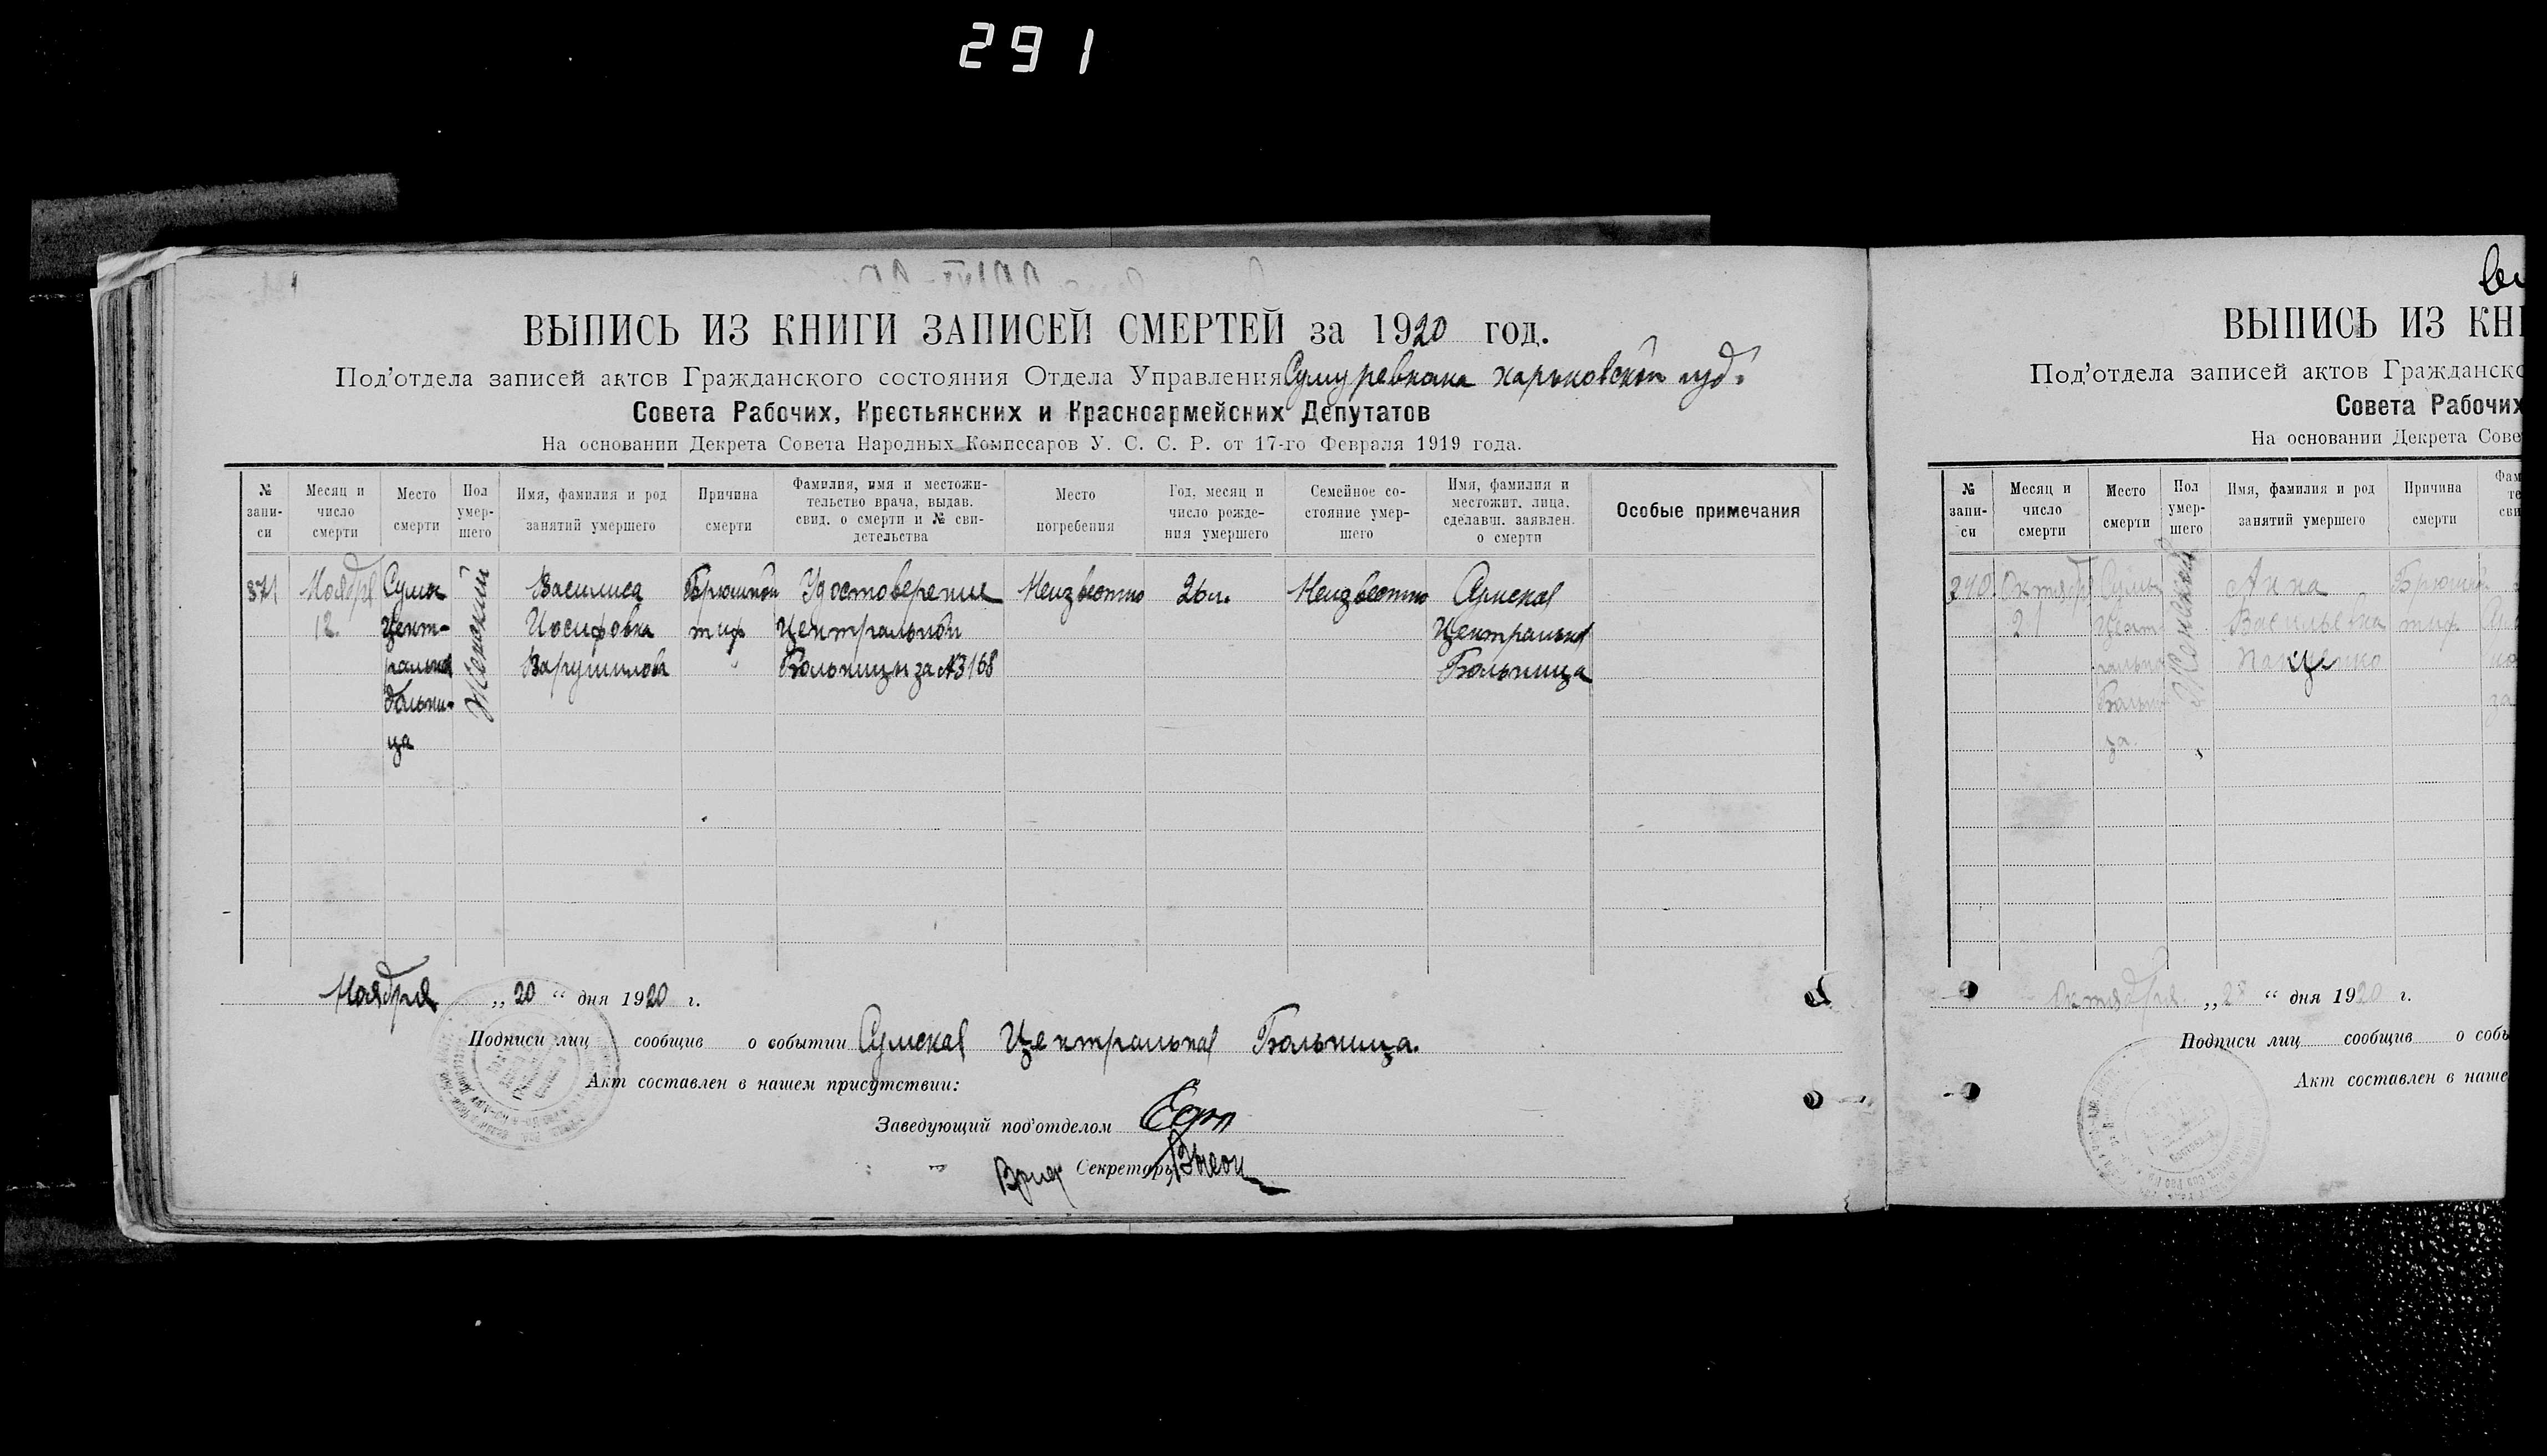 291
ВЫПИСЬ ИЗ КНИГИ ЗАПИСЕЙ СМЕРТЕЙ за 1920 год.
Под'отдела записей актов Гражданского состояния Отдела Управления Сумуревкома харьковской губ.
Совета Рабочих, Крестьянских и Красноармейских Депутатов
На основании Декрета Совета Народных Комиссаров У. С. С. Р. от 17-го Февраля 1919 года.
№ запи- си
Месяц и число смерти
Место смерти
Пол умер- шего
Имя, фамилия и род занятий умершего
Причина смерти
Фамилия, имя и местожи- тельство врача, выдав. свид. о смерти и № сви- детельства
Место погребения
Год, месяц и число рожде- ния умершего
Семейное со- стояние умер- шего
Имя, фамилия и местожит. лица, сделавш. заявлен. о смерти
Особые примечания
371
Ноября
12.
Сумы
Цент-
ральная
больни-
ца
Женский
Василиса
Иосифовна
Брюшной
тиф
Удостоверение
Центральной
Больницы за № 3168
Неизвестно
26 л.
Неизвестно
Сумская
Центральная
Больница
Ноября „20“ дня 1920 г.
Подписи лиц сообщив о событии Сумская Центральная Больница.
Акт составлен в нашем присутствии:
Заведующий под'отделом
Врид Секретарь
ВЫПИСЬ ИЗ КНИ
Под'отдела записей актов Гражданско
Совета Рабочих
На основании Декрета Сове
№ запи- си
Месяц и число смерти
Место смерти
Пол умер- шего
Имя, фамилия и род занятий умершего
Причина смерти
240.
Октября
21
Сумы
Цент-
ральная
Больни
ца.
Женский
Анна
Васильевна
Брюшной
тиф.
Октября „28“ дня 1920 г.
Подписи лиц сообщив о собы
Акт составлен в наше